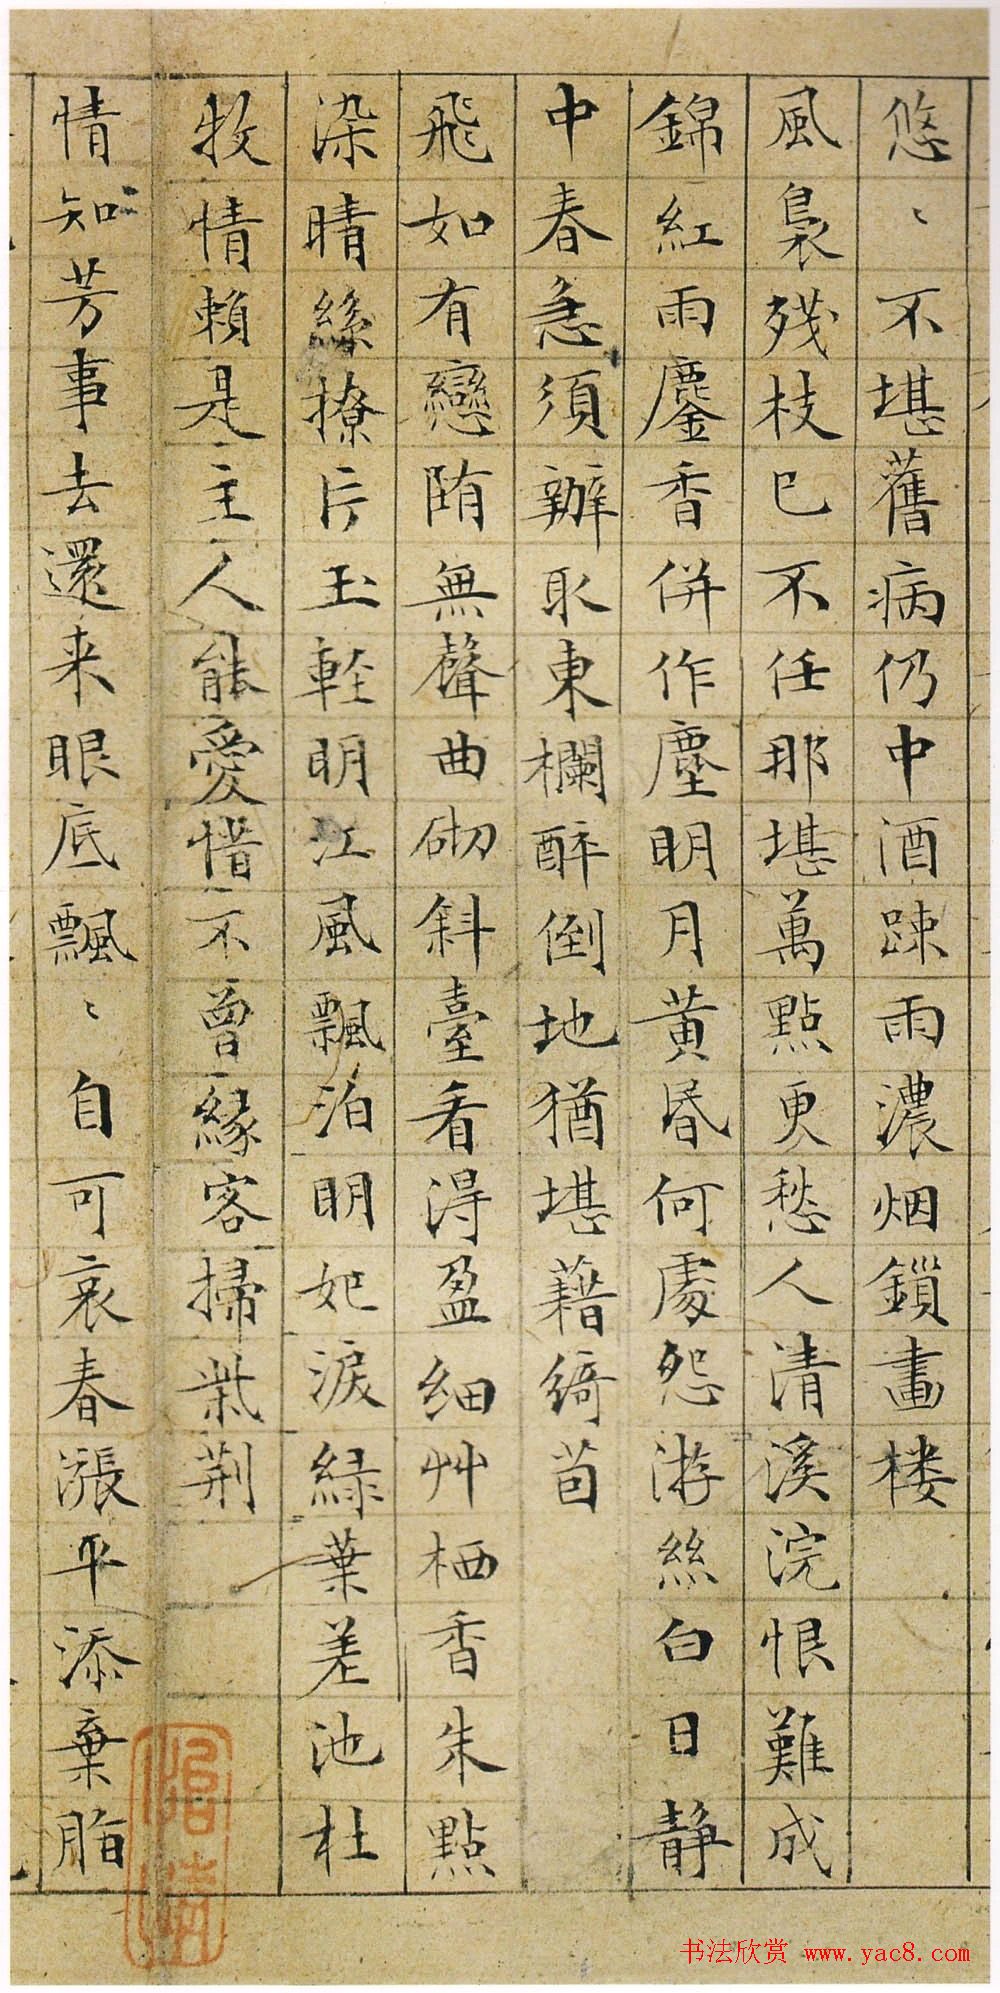 悠〻不堪舊病仍中酒踈雨濃烟鎖畫楼
風裊残枝已不任那堪萬點更愁人清溪浣恨難成
錦紅雨鏖香併作塵明月黄昏何處怨游絲白日静
中春急須辦取東欄醉倒地猶堪藉綺茵
飛如有戀陏無聲曲砌斜臺看淂盈細艸栖香朱點
染晴絲撩片玉輕明江風飄泊明妃淚緑葉差池杜
牧情賴是主人能愛惜不曾緣客掃柴荆
情知芳事去還来眼底飄〻自可哀春漲平添棄脂
书法欣赏 www.yac8.com